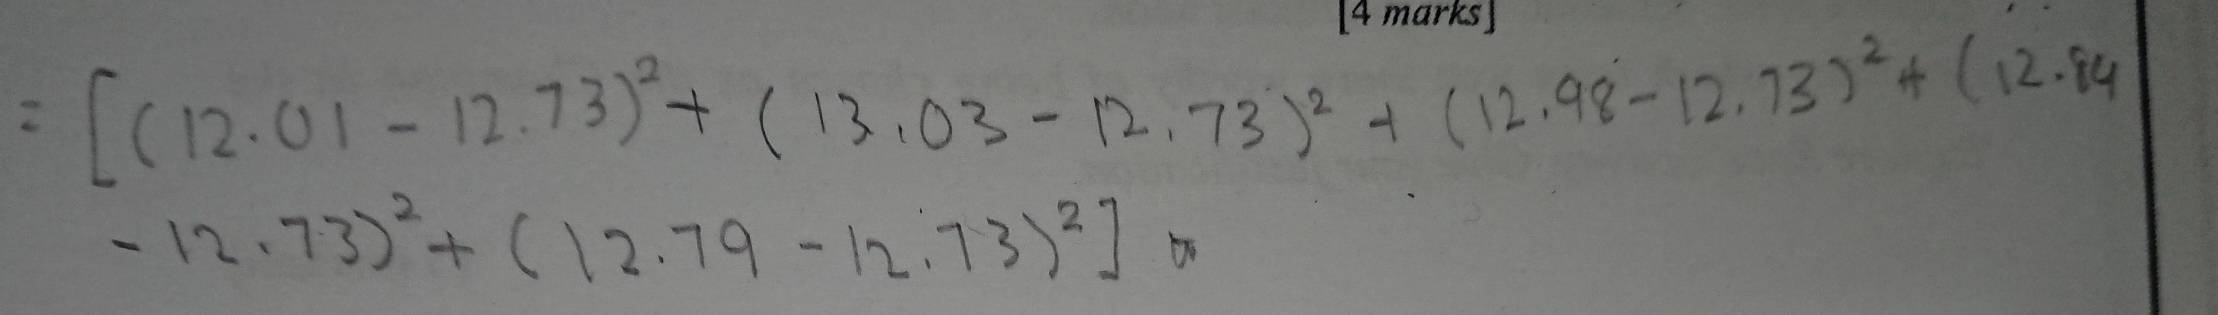 [4 marks]
= [(12.01 - 12.73)² + (13.03 - 12.73)² + (12.98 - 12.73)² + (12.84
- 12.73)² + (12.79 - 12.73)²]